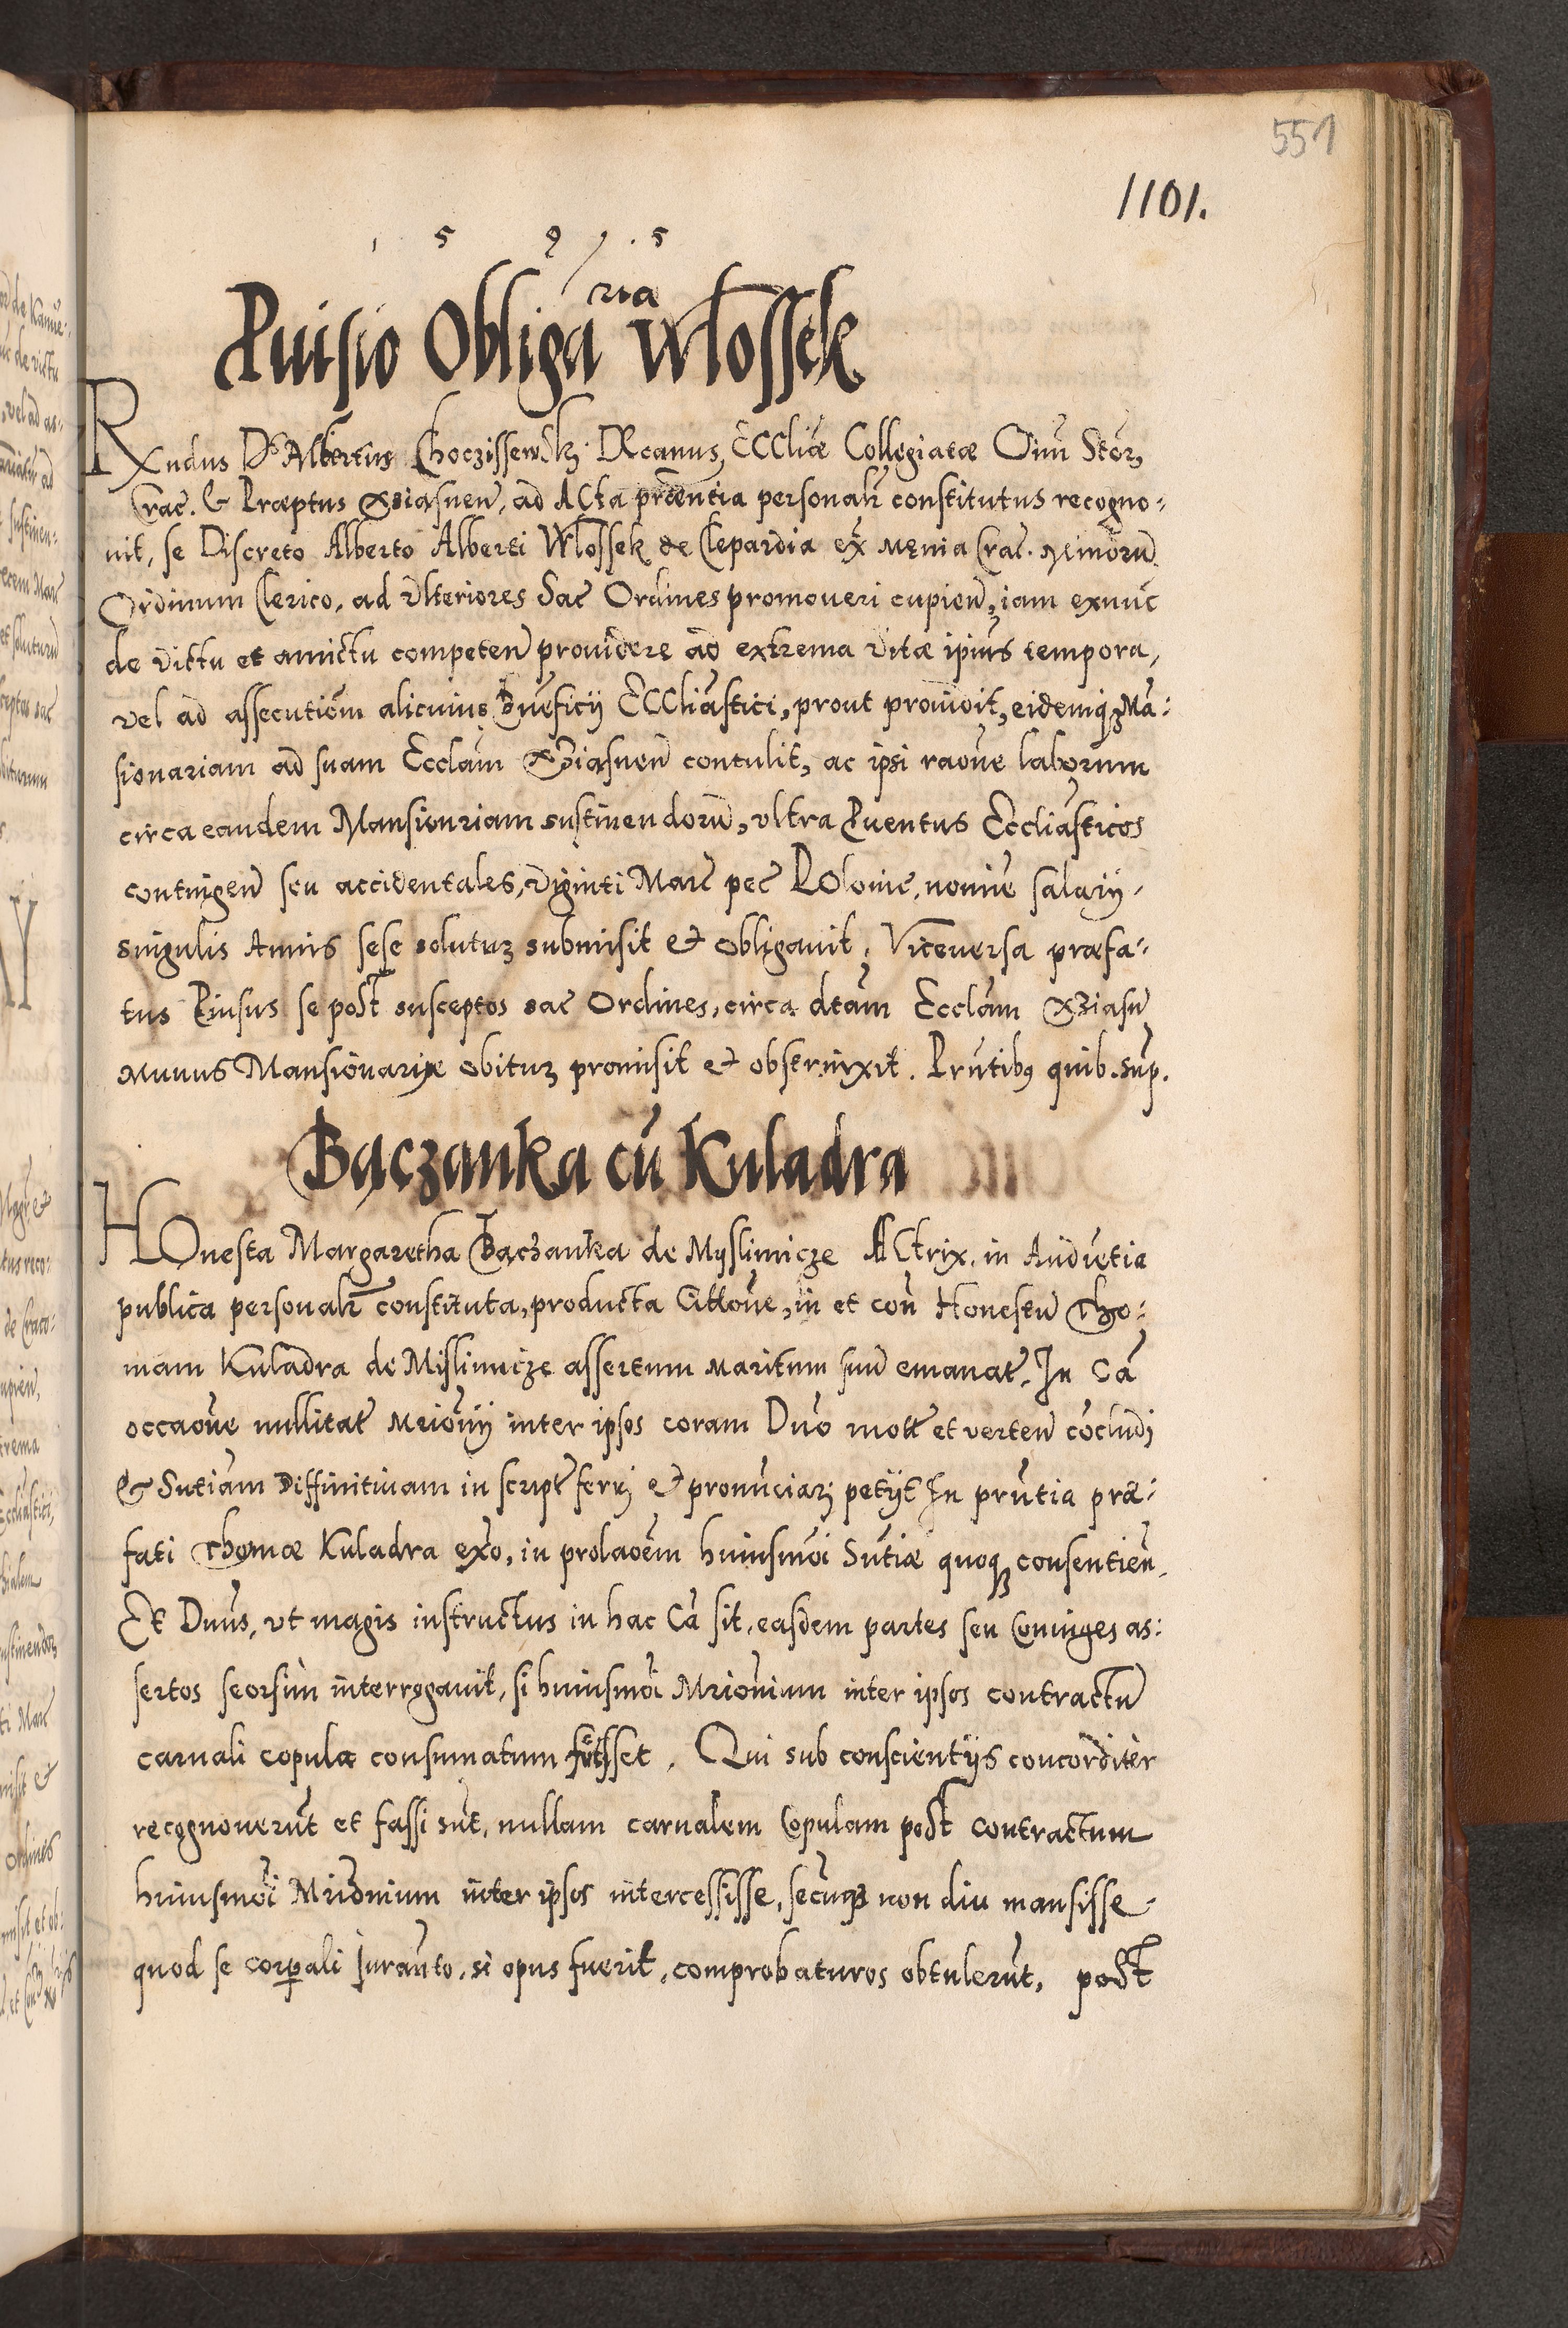 551
1101.
1 5 9 5
Puisio Obligaria Wlossek
Rxndus Ds Albertus Choczissewskj Decanus Eccliae Collegiatae Oiuū Stor,
Crac. & Praeptus Xziasnen̄, ad Acta praēntia personalr̄ constitutus recogno:
uit, se Discreto Alberto Alberti Wlossek de Clepardia ex Męnia Crac. Minorū
Ordinum Clerico, ad Vlteriores Sac̄ Ordines promoueri cupien̄, iam exnuc̄
de victu et amictu competen̄ prouidere ad extrema vitae ipius tempora,
vel ad assecutiōm alicuius Bneficij Eccliastici, prout prouidit, eidemq₃ Mā:
sionariam ad suam Ecclām Xziąsnen̄ contulit, ac ipsi raōne laborum
circa eandem Mansionriam sustinendorū, vltra Puentus Eccliasticos
contingen̄ seu accidentales, viginti Marc̄ pec̄ Polonic̄, nomiē salarij,
singulis Annis sese soluturz submisit et obligauit. Viceuersa praefa:
tus Piusus se post susceptos sac̄ Ordines, circa dtām Ecclām Xziasn̄
munus Mansionariae obiturz promisit et obstrinxit. Prntibus quib. sup.
Bączanka cū Kuladra
Honesta Margaretha Bączanka de Myslimicze Actrix, in Audiētia
publica personalr̄ constituta, producta Cittōne, in et con̄ Honestū Tho:
mam Kuladra de Mislimicze assertum maritum suū emanat̄. In Cā
occaōne nullitat̄ Mriōnij inter ipsos coram Dnō mott̄ et verten̄ cōcludj
& Sntiam Diffinitiuam in script̄ ferrj et pronūciarj petijt In prn̄tia prae:
fati Thomae Kuladra exō, in prolaōem huiusmōi Sn̄tiae quoq₃ consentien̄.
Et Dnūs, vt magis instructus in hac Cā sit, easdem partes seu Coniuges as:
sertos seorsim interrogauit, si huiusmōi Mriōnium inter ipsos contractū
carnali copula consumatum fuisset. Qui sub conscientijs concorditer
recognouerūt et fassi sūt, nullam carnalem Copulam post contractum
huiusmōi Mriōnium inter ipsos intercessisse, secūq₃ non diu mansisse,
quod se corpali Iuranto, si opus fuerit, comprobaturos obtulerūt, post